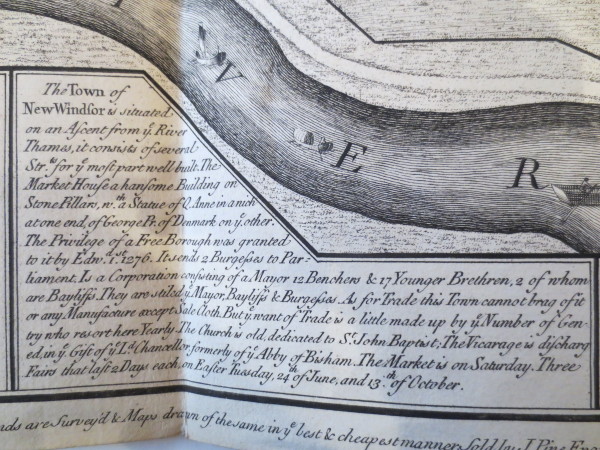 V E R
The Town of
New Windſor is ſituated
on an Aſcent from yͤ. River
Thames, it conſists of ſeveral
Strᵗˢ. for yͤ most part well built. The
Market Houſe a hanſome Building on
Stone Pillars, wᵗʰ. a Statue of Q. Anne in a nich
at one end, of George Pr. of Denmark on yͤ. other.
The Privilege of a Free Borough was granted
to it by Edwᵈ. 1ˢᵗ. 1276. It ſends 2 Burgeſses to Par-
liament. Is a Corporation conſiſting of a Mayor 12 Benchers & 17 Younger Brethren, 2 of whom
are Bayliffs. They are stiled yͤ. Mayor, Bayliffs & Burgeſses. As for Trade this Town cannot brag of it
or any Manufacture except Sale Cloth. But yͤ. want of Trade is a little made up by yͤ. Number of Gen-
try who resort here Yearly. The Church is old, dedicated to Sᵗ. John Baptist; The Vicarage is diſcharg
ed, in yͤ. Gift of yͤ. Lᵈ. Chancellor, formerly of yͤ. Abby of Bisham. The Market is on Saturday. Three
Fairs that laſt 2 Days each, on Easter Tuesday, 24ᵗʰ. of June, and 13ᵗʰ. of October.
nds are Survey'd & Maps drawn of the same in yͤ best & cheapest manner. Sold by J. Pine Eng